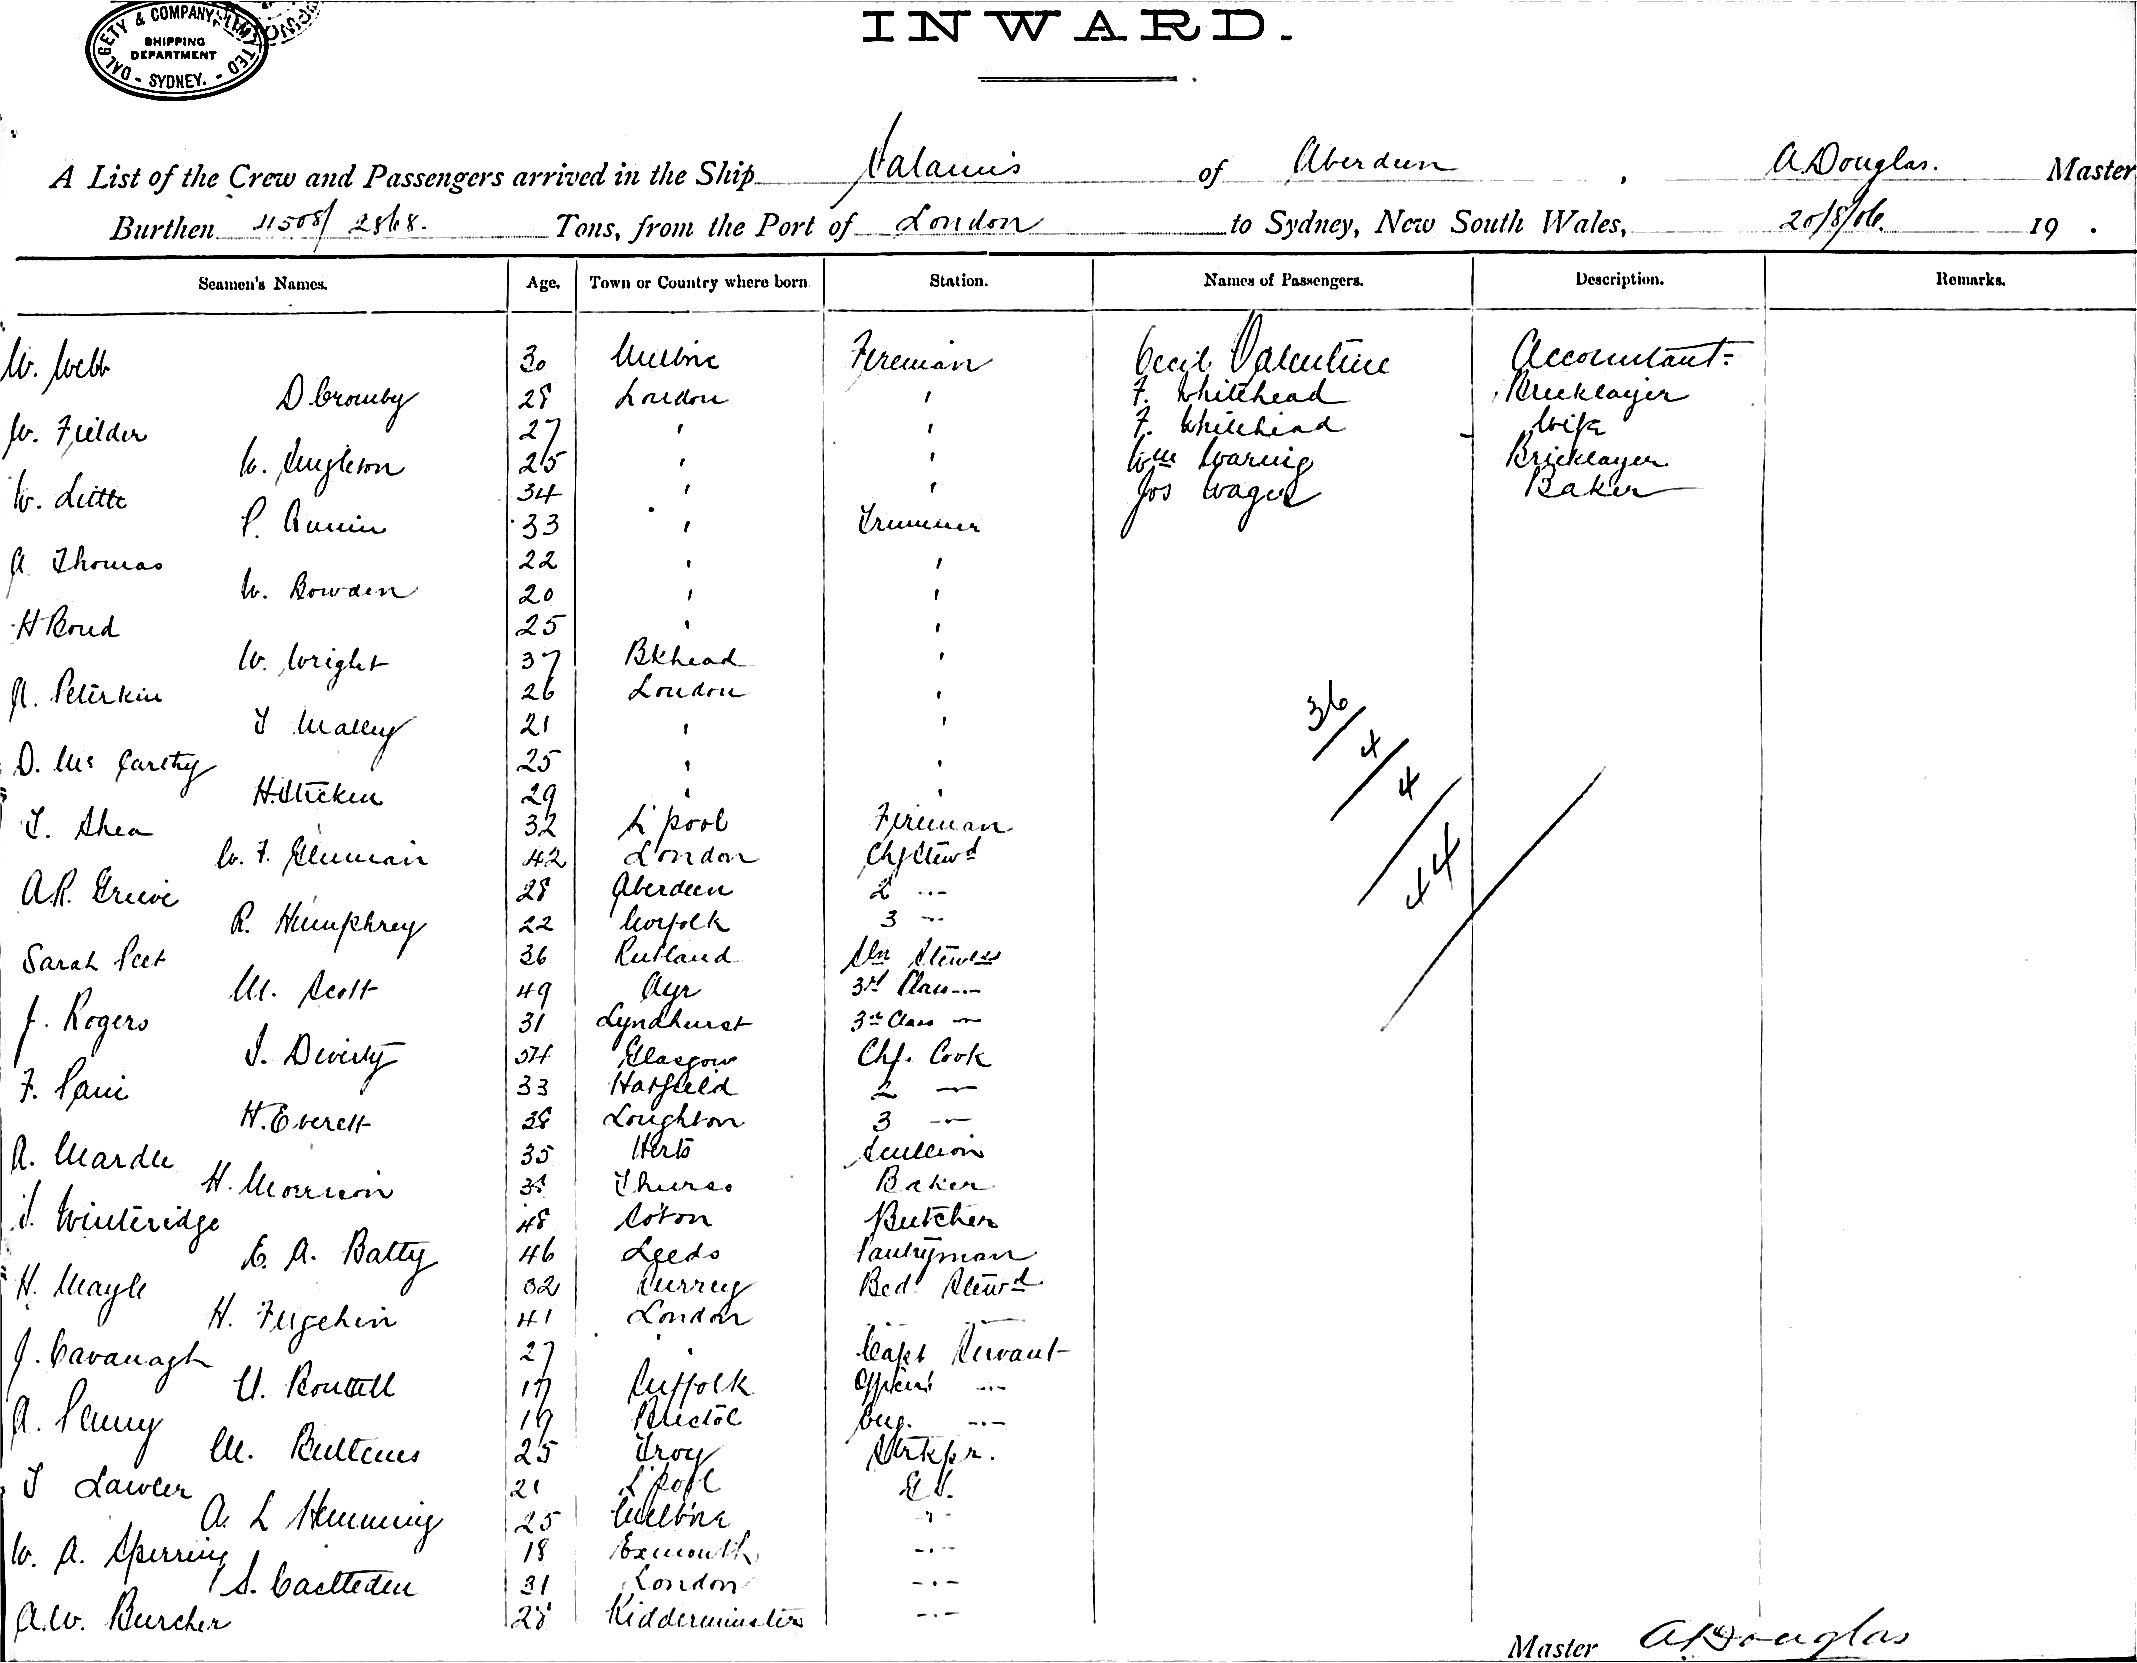 DALGETY & COMPANY, LIMITED
SHIPPING
DEPARTMENT
- SYDNEY. -
INWARD.
A List of the Crew and Passengers arrived in the Ship Salamis of Aberdeen, A. Douglas. Master
Burthen 4508/2868. Tons, from the Port of London to Sydney, New South Wales, 20/8/06. 19 .
Seamen's Names. Age. Town or Country where born Station. Names of Passengers. Description. Remarks.
W. Webb 30 Melbne Fireman Cecil Valentine Accountant
D Cromby 28 London ' F. Whitehead Bricklayer
W. Fielder 27 ' ' F. Whitehead Wife
W. Singleton 25 ' ' Wm Waring Bricklayer
W. Little 34 ' ' Jos Wager Baker
P. 33 ' Trimmer
A. Thomas 22 ' '
W. Bowden 20 ' '
H Bond 25 ' '
W. Wright 37 Bkhead '
A. Peterkin 26 London '
T Malley 21 ' '
D. Mc Carthy 25 ' '
H. 29 ' '
T. Shea 32 L'pool Fireman
W. F. 42 London Chf Stewd
A.R. Grieve 28 Aberdeen 2 -·-
R. Humphrey 22 Norfolk 3 -·-
Sarah Peet 36 Rutland Sln Stewdss
M. Scott 49 Ayr 3rd Class -·-
J. Rogers 31 Lyndhurst 3rd Class -·-
J. 54 Glasgow Chf. Cook
F. 33 Hatfield 2 -·-
H. Everett 38 Loughton 3 -·-
A. Mardle 35 Herts Scullion
H. Morrison 38 Thurso Baker
J. Winteridge 48 Soton Butcher
E. A. Batty 46 Leeds Pantryman
H. Mayle 32 Surrey Bed. Stewd
H. 41 London -·- -·-
J. Cavanagh 27 ' Capt Servant
17 Suffolk Officers -·-
A. Penny 19 Bristol Eng. -·-
M. 25 Troy Strkpr.
T Lawler 21 L'pool G.S.
A. L Hemming 25 Melbne -·-
W. A. Sperring 18 Exmouth -·-
S. 31 London -·-
A.W. Burcher 28 Kidderminster -·-
36
4
4
44
Master A. Douglas